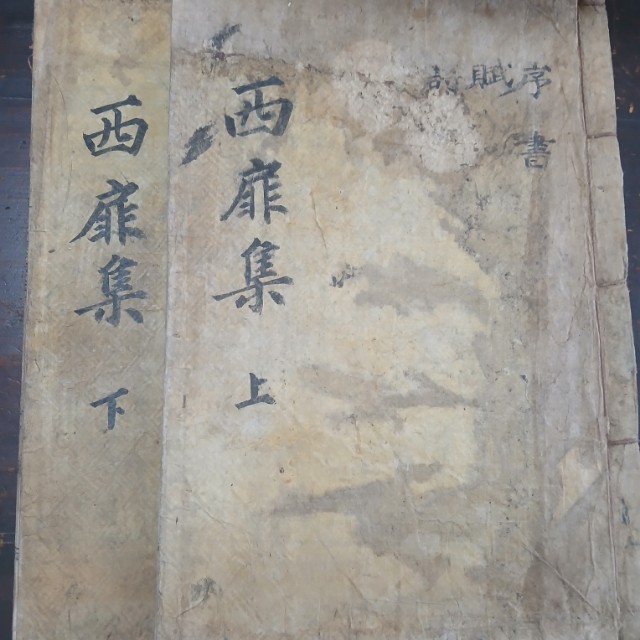 序 賦
書
西扉集 上
西扉集 下